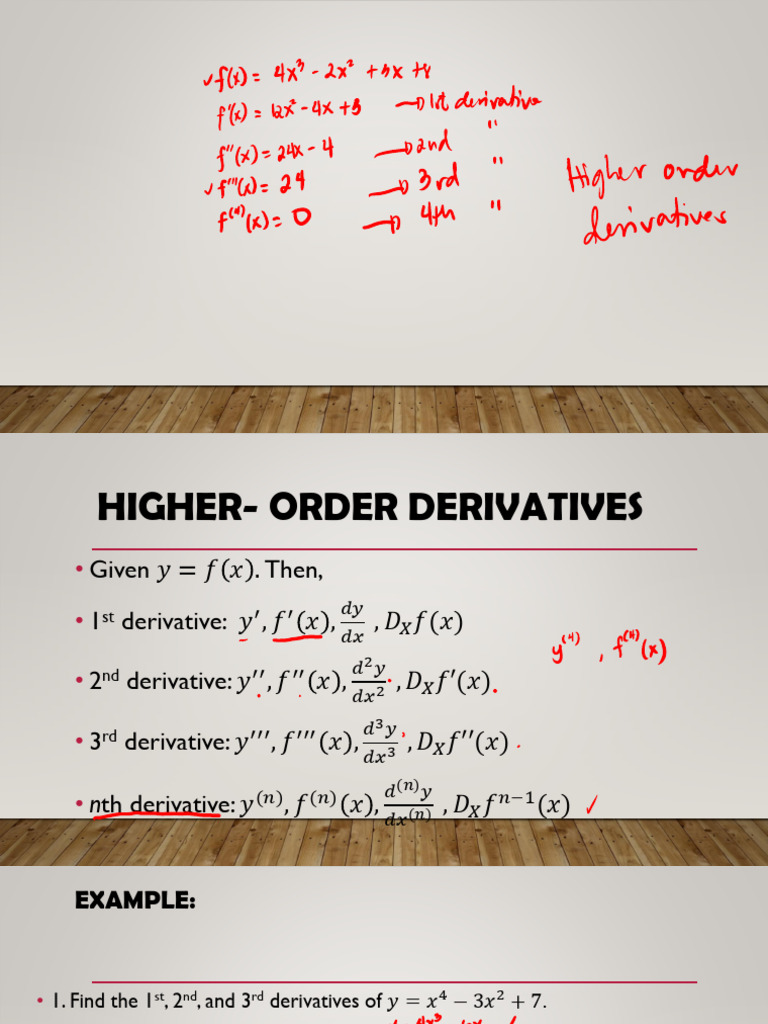 ✓f(x) = 4x³ - 2x² + 3x + 8
f'(x) = 12x² - 4x + 3 → 1st derivative
f''(x) = 24x - 4 → 2nd "
✓f'''(x) = 24 → 3rd "
f⁽⁴⁾(x) = 0 → 4th "
Higher order
derivatives
HIGHER- ORDER DERIVATIVES
• Given y = f(x). Then,
• 1st derivative: y′, f′(x), dy/dx , D_X f(x)
y⁽⁴⁾ , f⁽⁴⁾(x)
• 2nd derivative: y′′, f′′(x), d²y/dx² , D_X f′(x)
• 3rd derivative: y′′′, f′′′(x), d³y/dx³ , D_X f′′(x)
• nth derivative: y⁽ⁿ⁾, f⁽ⁿ⁾(x), d⁽ⁿ⁾y/dx⁽ⁿ⁾ , D_X fⁿ⁻¹(x) ✓
EXAMPLE:
• 1. Find the 1st, 2nd, and 3rd derivatives of y = x⁴ − 3x² + 7.